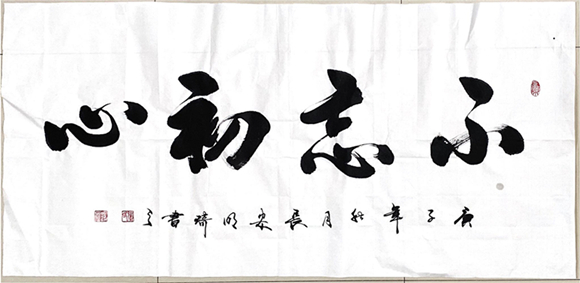 不忘初心
庚子年秋月長安明琦書之